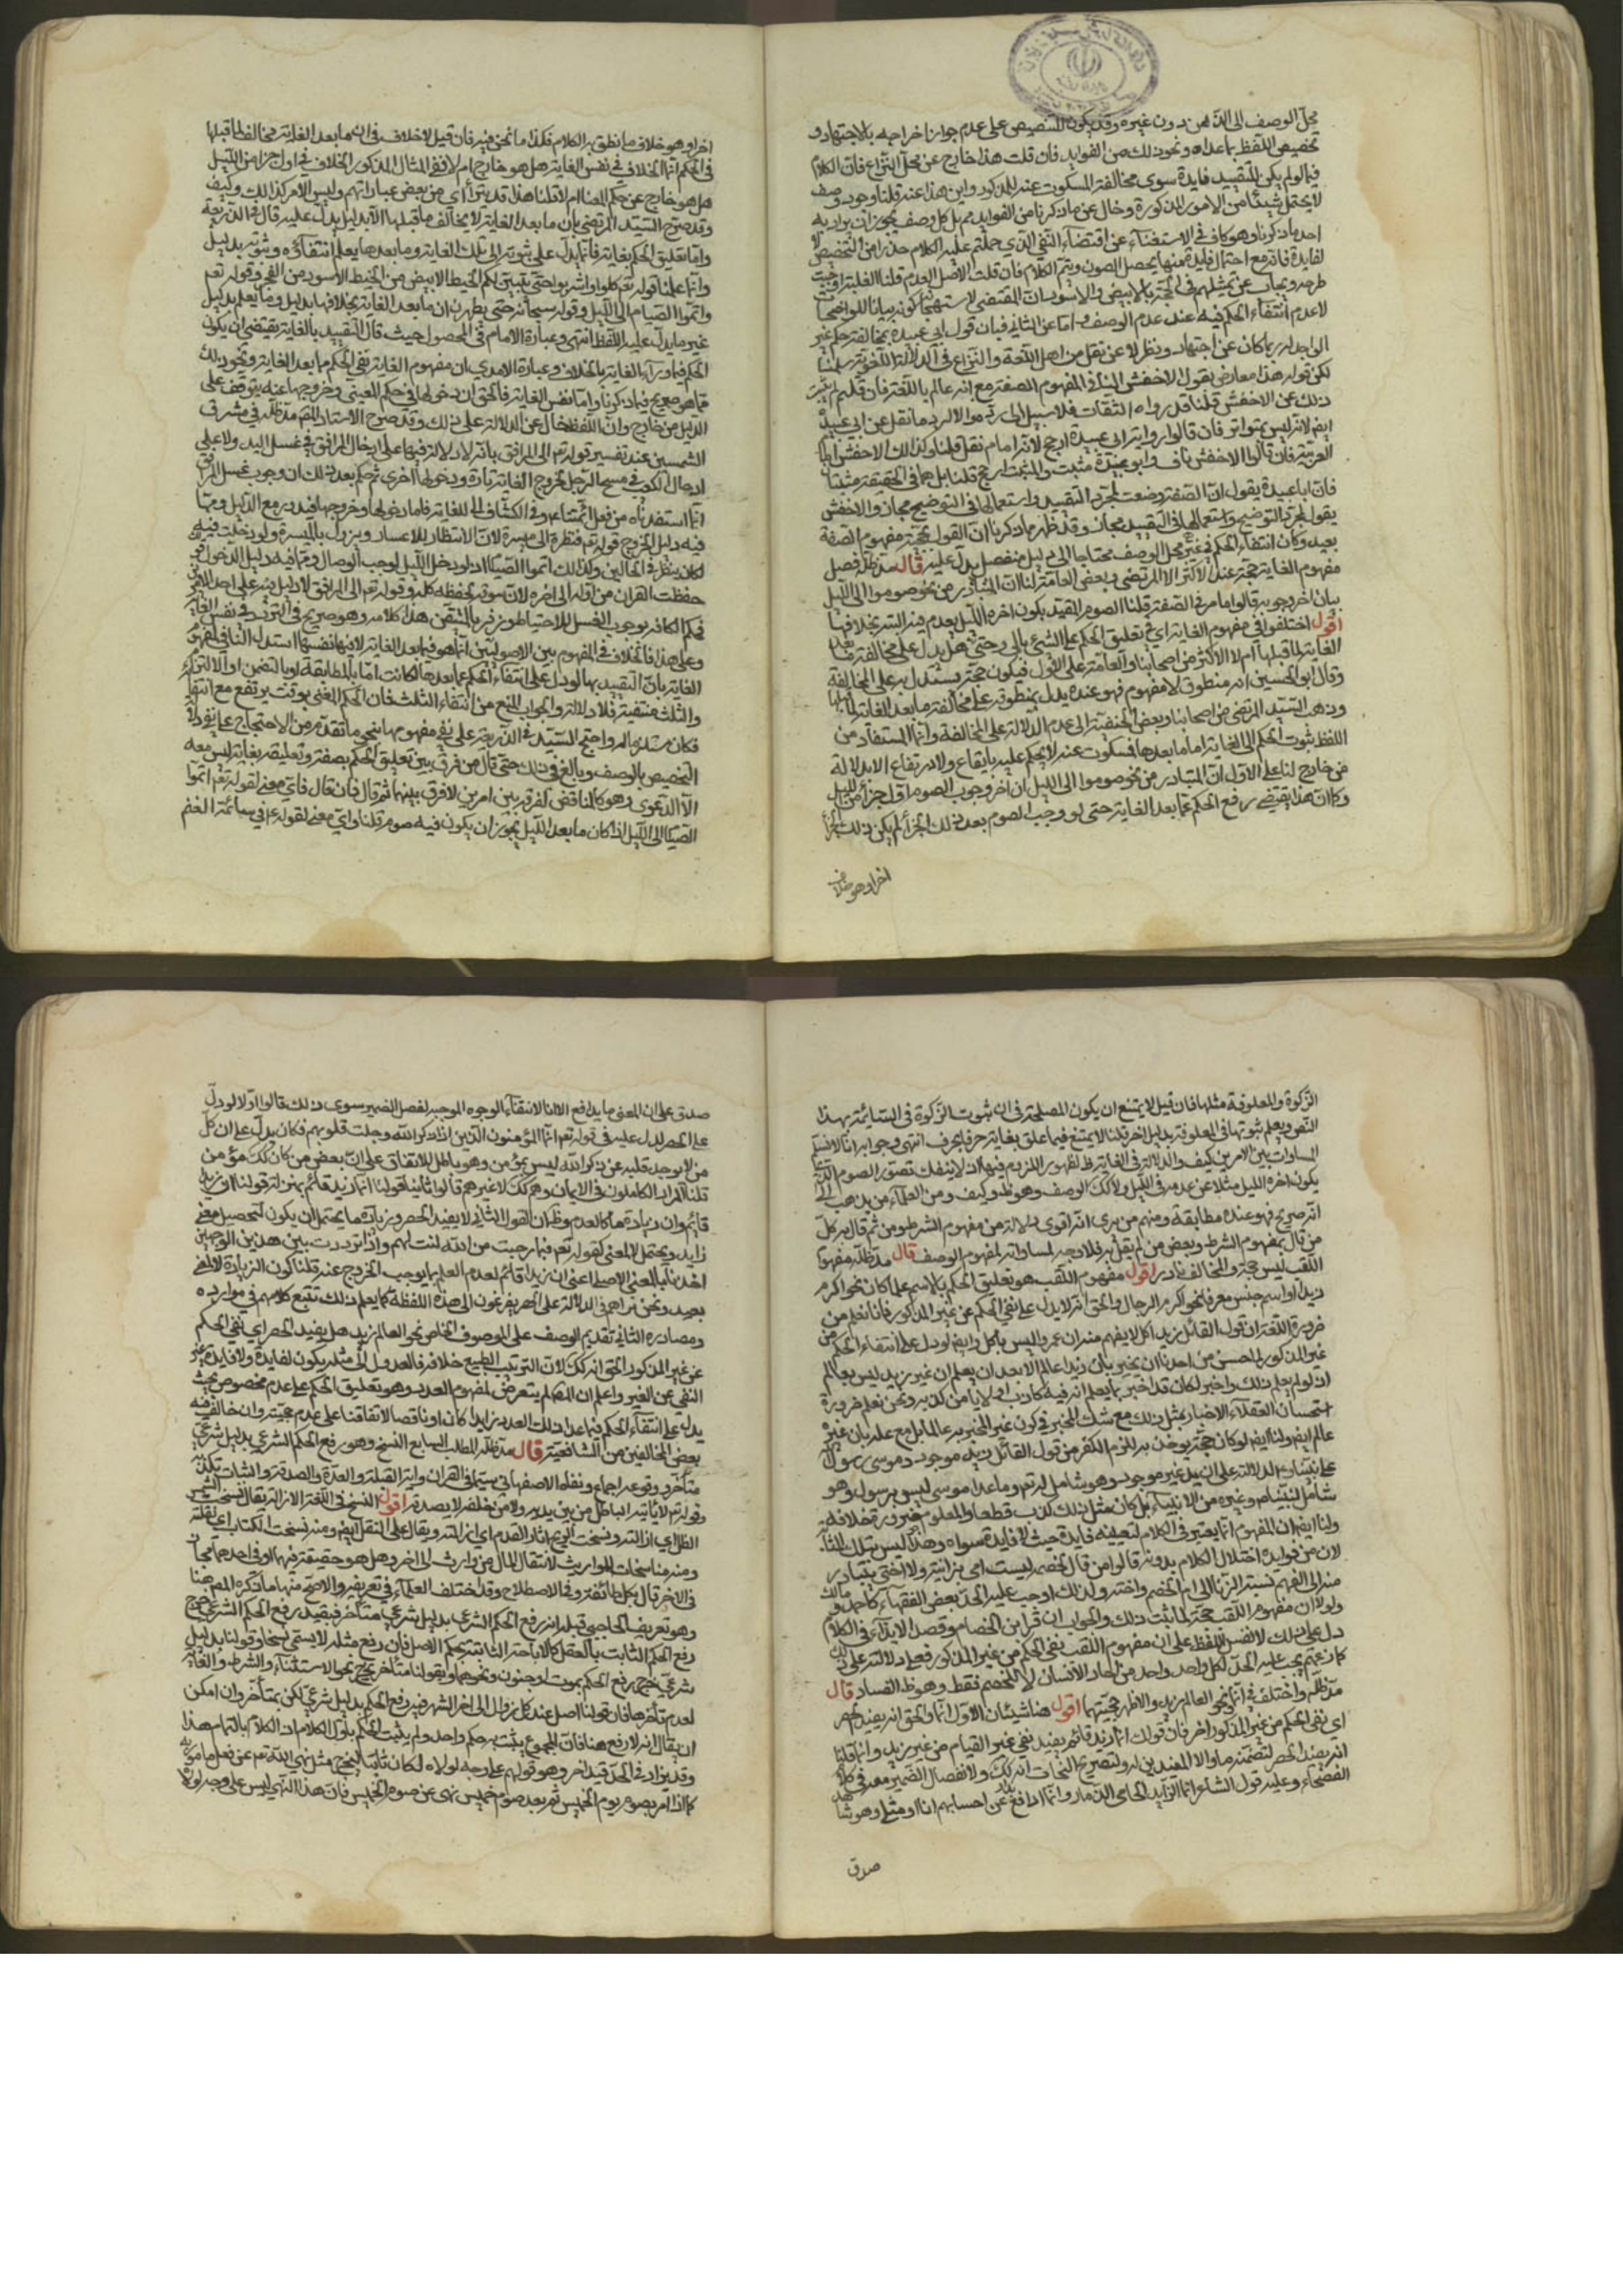 محل الوصف الى الذهن دون غيره وقد يكون للتنصيص على عدم جواز اخراجه بالاجتهاد و
تخصيص اللفظ بما عداه ونحو ذلك من الفوايد فان قلت هذا خارج عن محل النزاع فان الكلام
فيما لم يكن للتقييد فايدة سوى مخالفة المسكوت عنه للمذكور واين هذا عنه قلنا وجود وصف
لا يحتمل شيئا من الامور المذكورة وخال عن ما ذكرنا من الفوايد مم بل كل وصف يجوز ان يراد به
احد ما ذكرنا وهو كاف في الاستغناء عن اقتضاء النفي الذي حملتم عليه الكلام حذرا من التخصيص لا
لفايدة فانه مع احتمال فايدة منها يحصل الصون ويتم الكلام فان قلت الاصل العدم قلنا الغلبة
طرحه ويجاب عن تمثيلهم في الحجة بالابيض والاسود بان المقتضي لاستهجانه كونه بيانا للواضحات
لا عدم انتفاء الحكم فيه عند عدم الوصف واما عن الثاني فبان قول ابي عبيدة بمخالفة حكم غير
الواجد له ربما كان عن اجتهاد ونظر لا عن نقل من اهل اللغة والنزاع في الدلالة اللغوية سلمنا
لكن قوله هذا معارض بقول الاخفش المنافي المفهوم الصفة مع انه عالم باللغة فان قلتم لم يثبت
ذلك عن الاخفش قلنا قد رواه الثقات فلا سبيل الى رده والا لرد ما نقل عن ابي عبيدة
ايض لانه ليس بمتواتر فان قالوا رواية ابي عبيدة ارجح لانه امام نقل قلنا وكذلك الاخفش امام
العربية فان قالوا الاخفش ناف وابو عبيدة مثبت والمثبت ارجح قلنا بل هما في الحقيقة مثبتان
فان ابا عبيدة يقول ان الصفة وضعت لمجرد التقييد واستعمالها في التوضيح مجاز والاخفش
يقول لمجرد التوضيح واستعمالها في التقييد مجاز وقد ظهر مما ذكرنا ان القول بحجية مفهوم الصفة
بعيد وكان انتفاء الحكم في غير محل الوصف محتاجا الى دليل منفصل يدل عليه قال مد ظله فصل
مفهوم الغاية حجة عند الاكثر الا المرتضى وبعض العامة لنا ان المتبادر من نحو صوموا الى الليل
بيان اخر وجوبه قالوا ما مر في الصفة قلنا الصوم المقيد بكون اخره الليل يعدم فيه البتة بخلافها
اقول اختلفوا في مفهوم الغاية اي في تعليق الحكم على الشيء بالى وحتى هل يدل على مخالفة ما بعد
الغاية لما قبلها ام لا الاكثر من اصحابنا والعامة على الاول فيكون حجة يستدل به على المخالفة
وقال ابو الحسين انه منطوق لا مفهوم فهو عنده يدل بمنطوقه على مخالفة ما بعد الغاية لما قبلها
وذهب السيد المرتضى من اصحابنا وبعض الحنفية الى عدم الدلالة على المخالفة وانما المستفاد من
اللفظ ثبوت الحكم الى الغاية اما ما بعدها فمسكوت عنه لا يحكم عليه بايقاع ولا برتفاع الا بدلالة
من خارج لنا على الاول ان المتبادر من نحو صوموا الى الليل ان اخر وجوب الصوم اول جزء من الليل
وكان هذا يقتضي رفع الحكم عما بعد الغاية حتى لو وجب الصوم بعد ذلك الجزء لم يكن ذلك الجزء
اخرا وهو خلاف
اخرا وهو خلاف ما نطق به الكلام فكذا ما نحن فيه فان قيل لا خلاف في ان ما بعد الغاية مخالف لما قبلها
في الحكم انما الخلاف في نفس الغاية هل هو خارج ام لا ففي المثال المذكور الخلاف في اول جزء من الليل
هل هو خارج عن حكم المغيا ام لا قلنا هذا قد يتراى من بعض عباراتهم وليس الامر كذلك وكيف
وقد صرح السيد المرتضى بان ما بعد الغاية لا يخالف ما قبلها الا بدليل يدل عليه قال في الذريعة
واما تعليق الحكم بغاية فانما يدل على ثبوته الى تلك الغاية وما بعدها يعلم انتفاؤه وثبوته بدليل
وانما علمنا قوله تعم كلوا واشربوا حتى يتبين لكم الخيط الابيض من الخيط الاسود من الفجر وقوله تعم
واتموا الصيام الى الليل وقوله سبحانه حتى يطهرن ان ما بعد الغاية بخلافها بدليل وما يعلم بدليل
غير ما يدل عليه اللفظ انتهى وعبارة الامام في المحصول حيث قال التقييد بالغاية يقتضي ان يكون
الحكم فيما وراء الغاية بالخلاف وعبارة الامدي ان مفهوم الغاية نفي الحكم عما بعد الغاية ونحو ذلك
مما هو صريح فيما ذكرنا واما نفس الغاية فالحق ان دخولها في حكم المغيى وخروجها عنه يتوقف على
الدليل من خارج وان اللفظ خال عن الدلالة على ذلك وقد صرح الاستاد المصم مد ظله في مشرق
الشمسين عند تفسير قوله تعم الى المرافق بانه لا دلالة فيها على ادخال المرافق في غسل اليد ولا على
ادخال الكعب في مسح الرجل لخروج الغاية تارة ودخولها اخرى ثم حكم بعد ذلك ان وجوب غسل المرافق
انما استفدناه من فعل ائمتنا ع وفي الكشاف الى للغاية فاما دخولها وخروجها فيدور مع الدليل ومما
فيه دليل الخروج قوله تعم فنظرة الى ميسرة لان الانتظار للاعسار ويزول بالميسرة ولو دخلت فيه
لكان ينظر في الحالين وكذلك اتموا الصيام اذ لو دخل الليل لوجب الوصال ومما فيه دليل الدخول نحو
حفظت القران من اوله الى اخره لان سوقه لحفظه كله وقوله تعم الى المرافق لا دليل فيه على احد الامرين
فحكم الكافة بوجوب الغسل للاحتياط وزفر بالمتيقن هذا كلامه وهو صريح في التردد في نفس الغاية
وعلى هذا فالخلاف في المفهوم بين الاصوليين انما هو فيما بعد الغاية لا فيها نفسها استدل النافي لمفهوم
الغاية بان التقييد بها لو دل على انتفاء الحكم عما بعدها لكانت اما بالمطابقة او بالتضمن او الالتزام
والثلث منتفية فلا دلالة والجواب المنع من انتفاء الثلث فان الحكم المغيى بوقت يرتفع مع انتفائه
الا الدعوى وهو كالمناقض لفرقه بين امرين لا فرق بينهما ثم قال فان قال فاي معنى لقوله تعم اتموا
الصيام الى الليل اذا كان ما بعد الليل يجوز ان يكون فيه صوم قلنا واي معنى لقوله ع في سائمة الغنم
الزكوة والمعلوفة مثلها فان قيل لا يمتنع ان يكون المصلحة في ان ثبوت الزكوة في السائمة بهذا
النص ويعلم ثبوتها في المعلوفة بدليل اخر قلنا لا يمتنع فيما علق بغاية حرفا بحرف انتهى وجوابه انا لا نسلم
المساوات بين الامرين كيف والدلالة في الغاية ظ لظهور اللزوم فيها اذ لا ينفك تصور الصوم الذي
يكون اخره الليل مثلا عن عدمه في الليل ولا كذلك الوصف وهو ظ وكيف ومن العلماء من يذهب الى
انه صريح فهو عنده مطابقة ومنهم من يرى انه اقوى دلالة من مفهوم الشرط ومن ثم قال به كل
من قال بمفهوم الشرط وبعض من لم يقل به فلا وجه لمساواته لمفهوم الوصف قال مد ظله مفهوم
اللقب ليس حجة والمخالف نادر اقول مفهوم اللقب هو تعليق الحكم بالاسم علما كان نحو اكرم
زيدا او اسم جنس معرفا نحو اكرم الرجال والحق انه لا يدل على نفي الحكم عن غير المذكور فانا نعلم من
ضرورة اللغة ان قول القائل زيد اكل لا يفهم منه ان عمروا ليس باكل وايض لو دل على انتفاء الحكم من
غير المذكور لما حسن من احدنا ان يخبر بان زيدا عالم الا بعد ان يعلم ان غير زيد ليس بعالم
اذ لو لم يعلم ذلك واخبر لكان قد اخبر بما يعلم انه فيه كاذب او لا يامن كذبه ونحن نعلم ضرورة
استحسان العقلاء الاخبار بمثل ذلك مع شك المخبر في كون غير المخبر به عالما بل مع علمه بان غيره
عالم ايض ولنا ايض لو كان حجة يوخذ به للزم الكفر من قول القائل زيد موجود و موسى رسول الله
شامل لنبينا ص وغيره من الانبياء بل كان مثل ذلك كذب قطعا والمعلوم ضرورة خلافه
ولنا ايض ان المفهوم انما يعتبر في الكلام لتعيينه فايدة حيث لا فايدة سواه وهذا ليس بتلك المثابة
لان من فوايده اختلال الكلام بدونه قالوا من قال لخصمه ليست امي بزانية ولا اختي يتبادر
منه الى الفهم نسبة الزنا الى ام الخصم واخته ولذلك اوجب عليه الحد بعض الفقهاء كاحمد و مالك
ولولا ان مفهوم اللقب حجة لما يثبت ذلك والجواب ان قراين الخصام وقصد الايذاء في الكلام
دل على ذلك لا نفس اللفظ على ان مفهوم اللقب نفي الحكم من غير المذكور فعلى دلالته على ذلك
كان عنهم يجب عليه الحد لكل واحد واحد من احاد الانسان لا للخصم فقط وهو ظ الفساد قال
مد ظله واختلف في انما ونحو العالم زيد والاظهر حجيتهما اقول هنا شيئان الاول انما والحق انه يفيد الحصر
اي نفي الحكم من غير المذكور اخر فان قولك انما زيد قائم يفيد نفي غير القيام من غير زيد وانما قلنا
انه يفيد الحصر لتضمنه ما والا المفيدين له ولتصريح النحات انه كك ولانفصال الضمير معه في كلام
الفصحاء وعليه قول الشاعر انا الذايد الحامي الذمار وانما يدافع عن احسابهم انا او مثلي وهو شاهد
صدق
صدق على ان المعنى ما يدافع الا انا لانتفاء الوجوه الموجبة لفصل الضمير سوى ذلك قالوا اولا لو دل
على الحصر لدل عليه في قوله تعم انما المؤمنون الذين اذا ذكر الله وجلت قلوبهم فكان يدل على ان كل
من لا يوجل قلبه عن ذكر الله ليس بمؤمن وهو باطل للاتفاق على ان بعض من كان كك مؤمن
قلنا المراد الكاملون في الايمان وهم كك لا غيرهم قالوا ثانيا قولنا انما زيد قائم بمنزلة قولنا ان زيدا
قائم وان زيادة ما كالعدم وظ ان القول الثاني لا يفيد الحصر وزيادة ما يحتمل ان يكون لتحصيل معنى
زايد ويحتمل لا لمعنى كقوله تعم فبما رحمة من الله لنت لهم واذا ترددت بين هذين الوجهين
اخذنا بالمعنى الاصلي اعني ان زيدا قائم لعدم العلم بما يوجب الخروج عنه قلنا كون الزيادة لا لمعنى
بعيد ونحن نراهم في الدلالة على الحصر يفزعون الى هذه اللفظة كما يعلم ذلك تتبع كلامهم في موارده
ومصادره الثاني تقديم الوصف على الموصوف الخاص نحو العالم زيد هل يفيد الحصر اي نفي الحكم
عن غير المذكور الحق انه كك لان الترتيب الطبيعي خلافه فالعدول الى مثله يكون لفايدة ولا فايدة غير
النفي عن الغير واعلم ان المصم لم يتعرض لمفهوم العدد وهو تعليق الحكم على عدد مخصوص بحيث
يدل على انتفاء الحكم فيما عدا ذلك العدد زايدا كان او ناقصا لاتفاقنا على عدم حجيته وان خالف فيه
بعض المخالفين من الشافعية قال مد ظله المطلب السابع النسخ وهو رفع الحكم الشرعي بدليل شرعي
متاخر ووقوعه اجماعي ونفاه الاصفهاني في القران واية القبلة والعدة والصدقة والثبات تكذبه
وقوله تعم لا ياتيه الباطل من بين يديه ولا من خلفه لا يصدقه اقول النسخ في اللغة الازالة يقال نسخت الشمس
الظل اي ازالته ونسخت الريح اثار القدم اي ازالته ويقال على النقل ايض ومنه نسخت الكتاب اي نقلته
ومنه مناسخات المواريث لانتقال المال من وارث الى اخر وهل هو حقيقة فيهما او في احدهما مجاز
في الاخر قال بكل طائفة وفي الاصطلاح وقد اختلف العلماء في تعريفه والاصح منها ما ذكره المصم هنا
وهو تعريف الحاجبي قبله انه رفع الحكم الشرعي بدليل شرعي متاخر فبقيد رفع الحكم الشرعي خرج
رفع الحكم الثابت بالعقل كالاباحة الثابتة بحكم الاصل فان رفع مثله لا يسمى نسخا وقولنا بدليل
شرعي خرج رفع الحكم بموت او جنون ونحوهما وبقولنا متاخر خرج نحو الاستثناء والشرط والغاية
لعدم تاخرها فان قولنا صل عند كل زوال الى اخر الشهر فيه رفع الحكم بدليل شرعي لكن بمتاخر وان امكن
ان يقال انه لا رفع هنا فان المجموع يثبت به حكم واحد ولم يثبت الحكم باول الكلام اذ الكلام بالتمام هذا
وقد يزاد في الحد قيد اخر وهو قولهم على وجه لولاه لكان ثابتا ليخرج مثل نهي الله تعم عن فعل مامور به
كما اذا امر بصوم يوم الخميس ثم بعد صوم خميس نهى عن صوم الخميس فان هذا النهي ليس على وجه لولاه